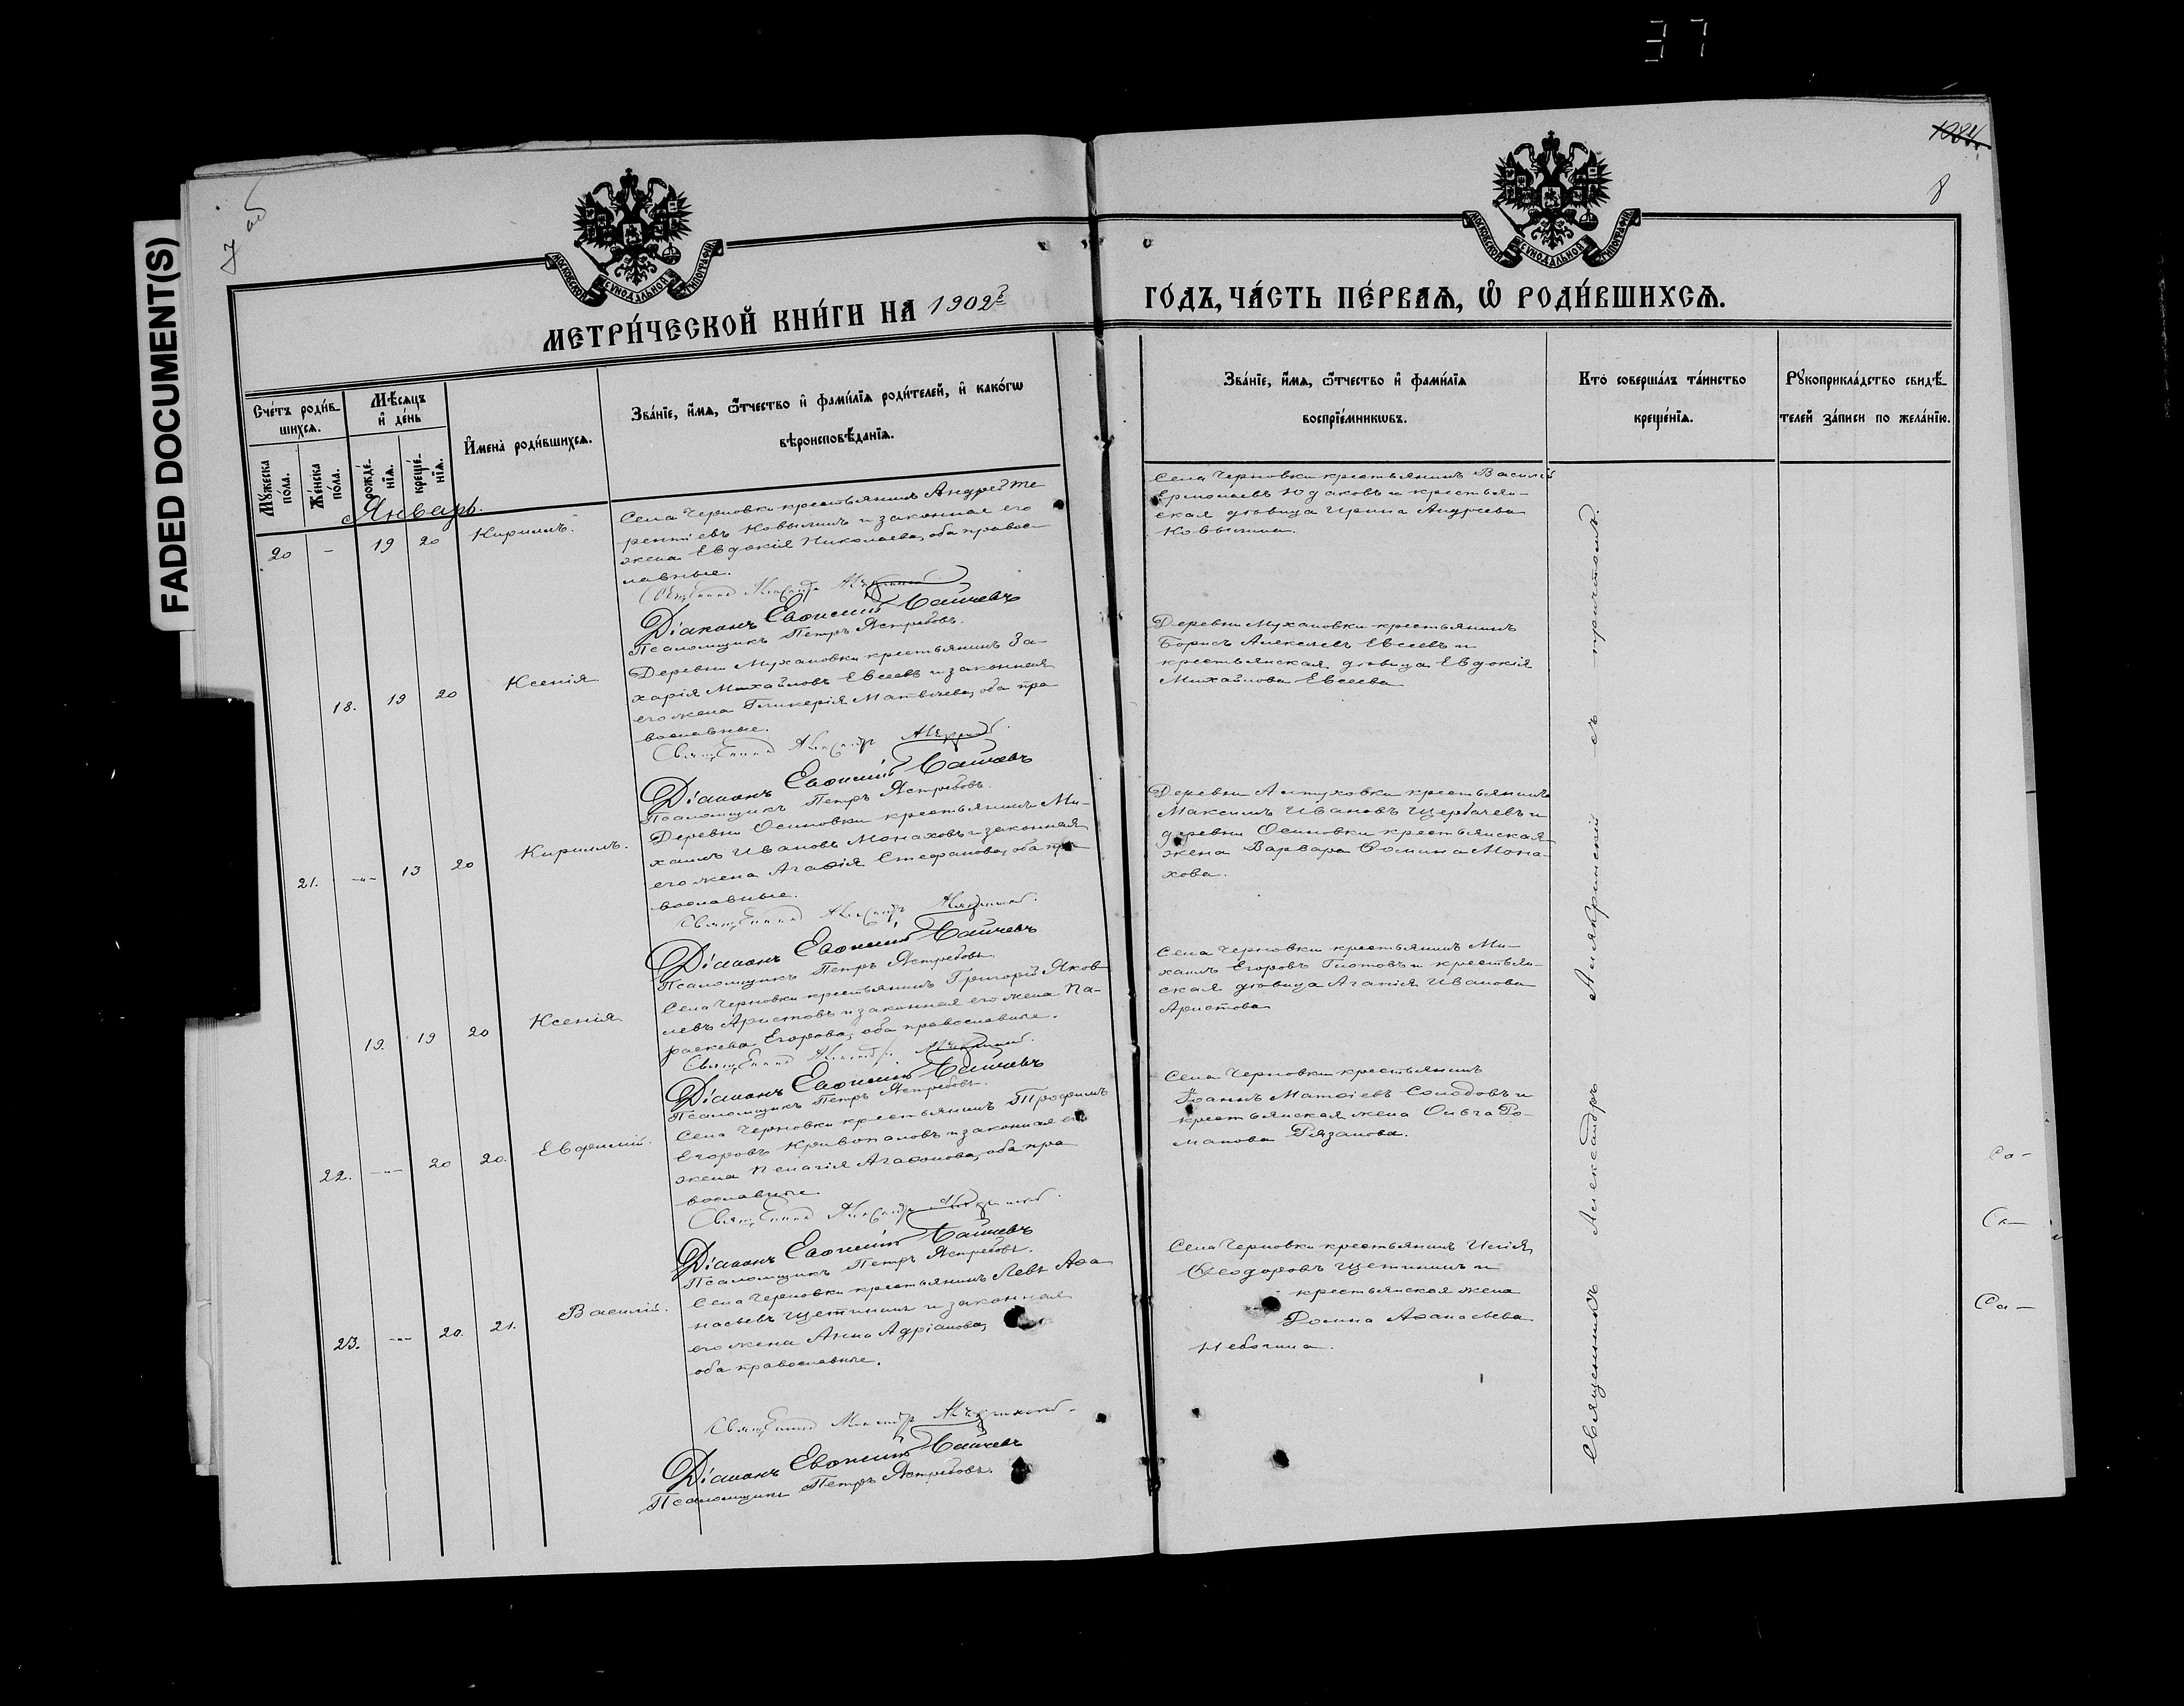 37
FADED DOCUMENT(S)
7 об
1084.
8
МОСКОВСКОЙ СѴНОДАЛЬНОЙ ТИПОГРАФІИ
МОСКОВСКОЙ СѴНОДАЛЬНОЙ ТИПОГРАФІИ
МЕТРИ́ЧЕСКОЙ КНИ́ГИ НА 1902 г
ГО́ДЪ, ЧА́СТЬ ПЕ́РВАѦ, Ѽ РОДИ́ВШИХСѦ.
Сче́тъ роди́в-
шихсѧ.
Мꙋжеска по́ла.
Же́нска по́ла.
Мѣ́сѧцъ и҆ де́нь
рожде́-нїѧ.
креще́-нїѧ.
И҆мена̀ роди́вшихсѧ.
Зва́нїе, и҆́мѧ, ѻ҆́тчество и҆ фами́лїѧ роди́телей, и҆ како́гѡ
вѣроисповѣ́данїѧ.
Зва́нїе, и҆́мѧ, ѻ҆́тчество и҆ фами́лїѧ
воспрїе́мникѡвъ.
Кто̀ соверша́лъ та́инство
креще́нїѧ.
Рꙋкоприкла́дство свидѣ́-
телей за́писи по жела́нїю.
Январь.
20 - 19 20 Кириллъ.
Села Черновки крестьянинъ Андрей Те
рентіевъ Ковылинъ и законная его
жена Евдокія Николаева, оба правос-
лавные.
Священникъ Александръ
Діаконъ Евѳимій
Псаломщикъ Петръ Ястребовъ.
Села Черновки крестьянинъ Василій
Ермолаевъ Юдаковъ и крестьян-
ская дѣвица Ирина Андреева
Ковылина.
18. 19 20 Ксенія
Деревни Мухановки крестьянинъ За-
харія Михайловъ Евсеевъ и законная
его жена Гликерія Матвѣева, оба пра
вославные.
Священникъ Александръ
Діаконъ Евѳимій
Псаломщикъ Петръ Ястребовъ.
Деревни Мухановки крестьянинъ
Борисъ Алексѣевъ Евсеевъ и
крестьянская дѣвица Евдокія
Михайлова Евсеева
21. -"- 13 20 Кириллъ.
Деревни Осиновки крестьянинъ Ми-
хаилъ Ивановъ Монаховъ и законная
его жена Агаѳія Стефанова, оба пра
вославные.
Священникъ Александръ
Діаконъ Евѳимій
Псаломщикъ Петръ Ястребовъ.
Деревни Алтуховки крестьянинъ
Максимъ Ивановъ Щербачевъ и
деревни Осиновки крестьянская
жена Варвара Ѳомина Мона-
хова.
19. 19 20 Ксенія
Села Черновки крестьянинъ Григорій Яков
левъ Аристовъ и законная его жена Па-
раскева Егорова, оба православные.
Священникъ Александръ
Діаконъ Евѳимій
Псаломщикъ Петръ Ястребовъ.
Села Черновки крестьянинъ Ми-
хаилъ Егоровъ Глотовъ и крестьян-
ская дѣвица Агапія Иванова
Аристова
22. -"- 20 20. Евфимій.
Села Черновки крестьянинъ Трофимъ
Егоровъ Кривопаловъ и законная его
жена Пелагія Агаѳонова, оба пра
вославные.
Священникъ Александръ
Діаконъ Евѳимій
Псаломщикъ Петръ Ястребовъ.
Села Черновки крестьянинъ
Іоаннъ Матѳіевъ Солодовъ и
крестьянская жена Ольга Ро-
манова Рязанова.
23. -"- 20. 21. Василій.
Села Черновки крестьянинъ Левъ Аѳа
насьевъ Щетининъ и законная
его жена Анна Адріанова,
оба православные.
Священникъ Александръ
Діаконъ Евѳимій
Псаломщикъ Петръ Ястребовъ.
Села Черновки крестьянинъ Илія
Ѳеодоровъ Щетининъ и
крестьянская жена
Домна Аѳанасьева
Священникъ Александръ Алякринскій съ причтомъ.